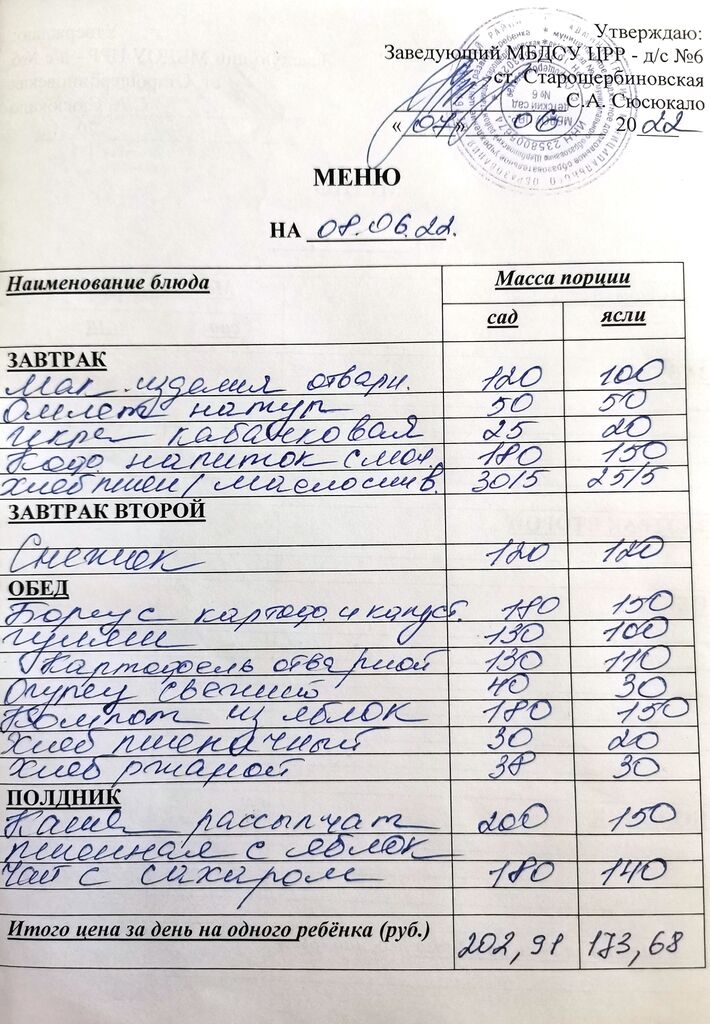 Утверждаю:
Заведующий МБДОУ ЦРР - д/с №6
ст. Старощербиновская
С.А. Сюсюкало
« 07 » 06 2022
МЕНЮ
НА 08.06.22.
Наименование блюда Масса порции
сад ясли
ЗАВТРАК
Мак. изделия отварн. 120 100
Омлет натур 50 50
Икра кабачковая 25 20
Кофе. напиток с мол. 180 150
Хлеб пшен/масло слив. 30/5 25/5
ЗАВТРАК ВТОРОЙ
Снежок 120 120
ОБЕД
Борщ с картоф. и капуст. 180 150
гуляш 130 100
Картофель отварной 130 110
Огурец свежий 40 30
Компот из яблок 180 150
Хлеб пшеничный 30 20
Хлеб ржаной 38 30
ПОЛДНИК
Каша рассыпчат 200 150
пшенная с яблок
Чай с сахаром 180 140
Итого цена за день на одного ребёнка (руб.) 202,91 173,68